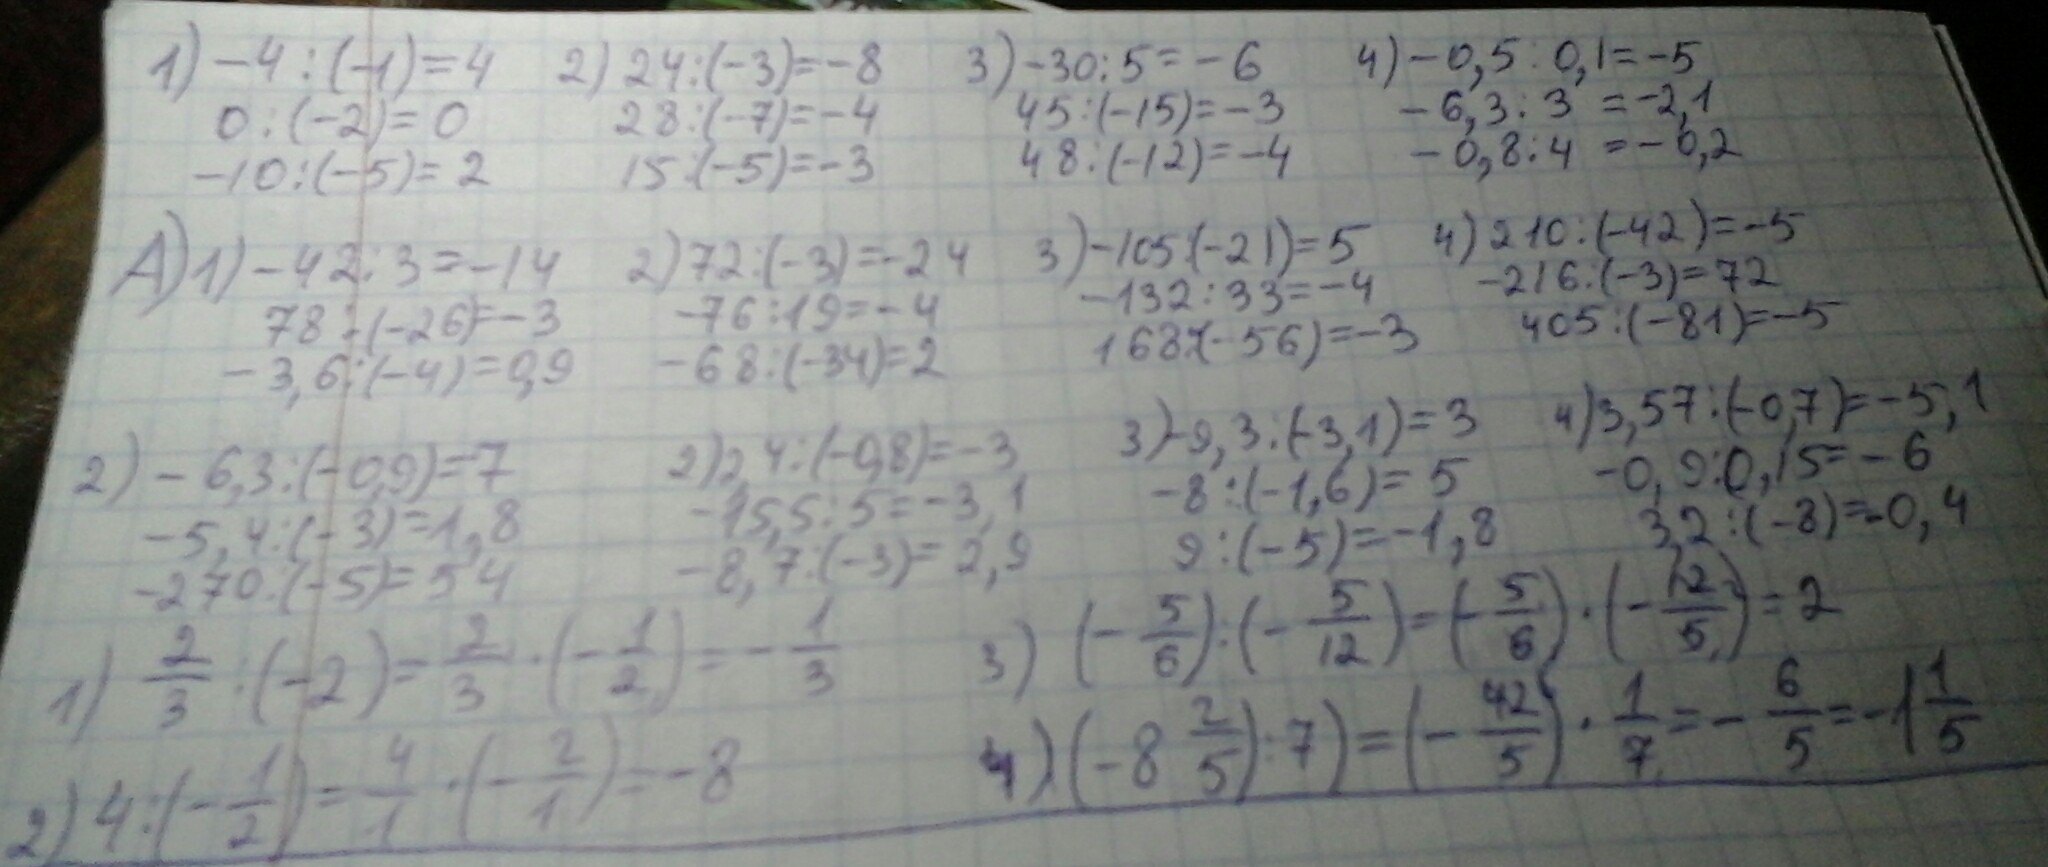 1) -4 : (-1) = 4   2) 24 : (-3) = -8   3) -30 : 5 = -6   4) -0,5 : 0,1 = -5
0 : (-2) = 0   28 : (-7) = -4   45 : (-15) = -3   -6,3 : 3 = -2,1
-10 : (-5) = 2   15 : (-5) = -3   48 : (-12) = -4   -0,8 : 4 = -0,2
А) 1) -42 : 3 = -14   2) 72 : (-3) = -24   3) -105 : (-21) = 5   4) 210 : (-42) = -5
78 : (-26) = -3   -76 : 19 = -4   -132 : 33 = -4   -216 : (-3) = 72
-3,6 : (-4) = 0,9   -68 : (-34) = 2   168 : (-56) = -3   405 : (-81) = -5
2) -6,3 : (-0,9) = 7   2) 2,4 : (-0,8) = -3   3) -9,3 : (-3,1) = 3   4) 3,57 : (-0,7) = -5,1
-5,4 : (-3) = 1,8   -15,5 : 5 = -3,1   -8 : (-1,6) = 5   -0,9 : 0,15 = -6
-270 : (-5) = 54   -8,7 : (-3) = 2,9   9 : (-5) = -1,8   3,2 : (-8) = -0,4
1) 2/3 : (-2) = 2/3 · (-1/2) = -1/3   3) (-5/6) : (-5/12) = (-5/6) · (-12/5) = 2
2) 4 : (-1/2) = 4/1 · (-2/1) = -8   4) (-8 2/5) : 7) = (-42/5) · 1/7 = -6/5 = -1 1/5